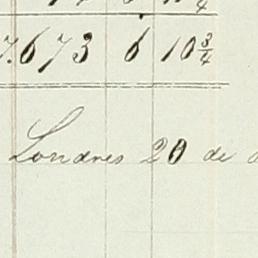 7.673 6 10 3/4
Londres 20 de